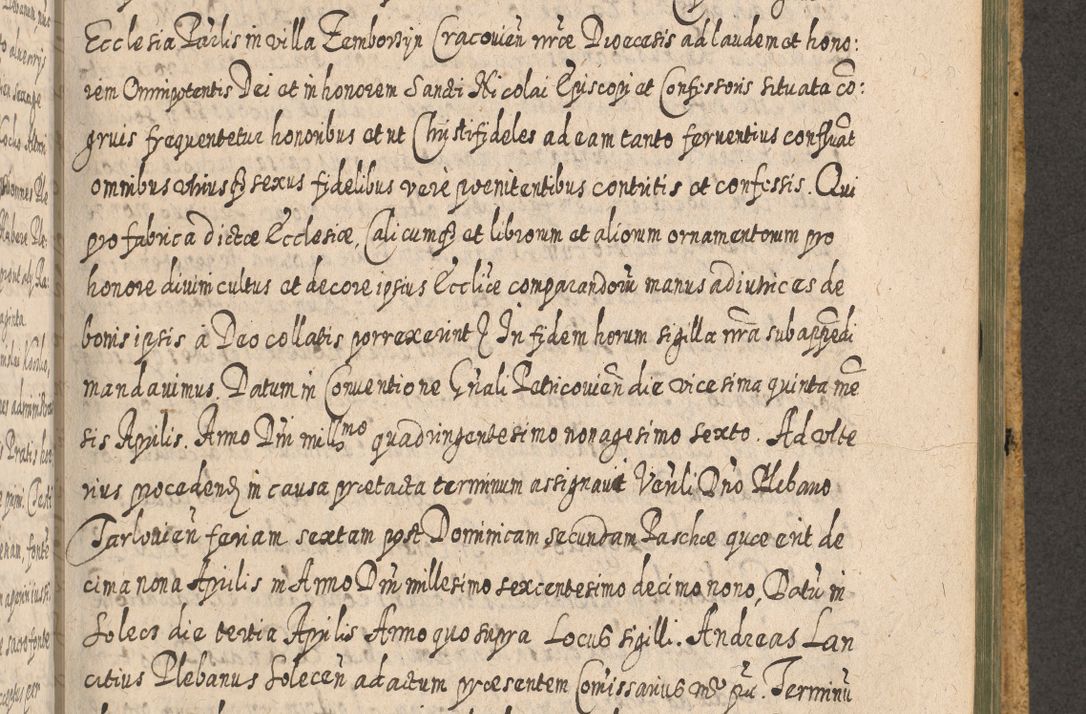 Ecclesia Parlis in villa Zemborzyn Cracovien nrae Dioecesis ad laudem et hono:
rem Omnipotentis Dei et in honorem Sancti Nicolai Episcopi et Confessoris situata co:
gruis frequentetur honoribus et ut Chrystifideles ad eam tanto ferventius confluat
omnibus utriusq sexus fidelibus vere poenitentibus contritis et confessis. Qui
pro fabrica dictae Ecclesiae, Calicumq et librorum et aliorum ornamentorum pro
honore divini cultus et decore ipsius Ecclice comparandoru manus adiutrices de
bonis ipsis a Deo collatis porrexerint In fidem horum sigilla nra subappedi
mandavimus. Datum in Conventione Gnali Petricovien die vicesima quinta me
sis Aprilis. Anno Dni mill mo quadringentesimo nonagesimo sexto. Ad ulte
rius procedend in causa praetacta terminum assignavit Venli Dno Plebano
Tarlovien feriam sextam post Dominicam secundam Paschae quae erit de
cima nona Aprilis in Anno Dni millesimo sexcentesimo decimo nono, Datu in
Solecz die tertia Aprilis Anno quo supra Locus sigilli. Andreas Lan
citius Plebanus Solecen ad actum praesentem Comissarius mo pu. Terminu